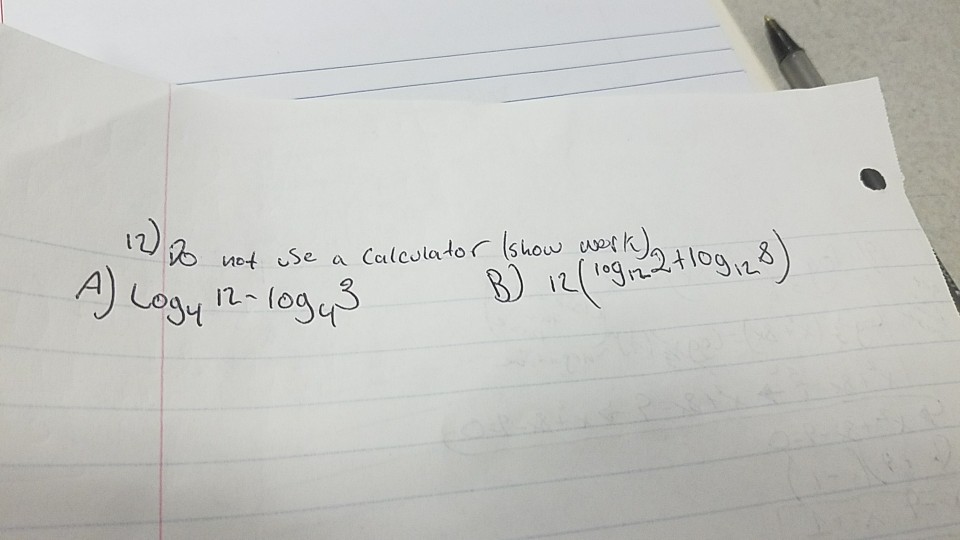 12) Do not use a calculator (show work)
A) Log₄ 12 - log₄ 3
B) 12(log₁₂ 2 + log₁₂ 8)